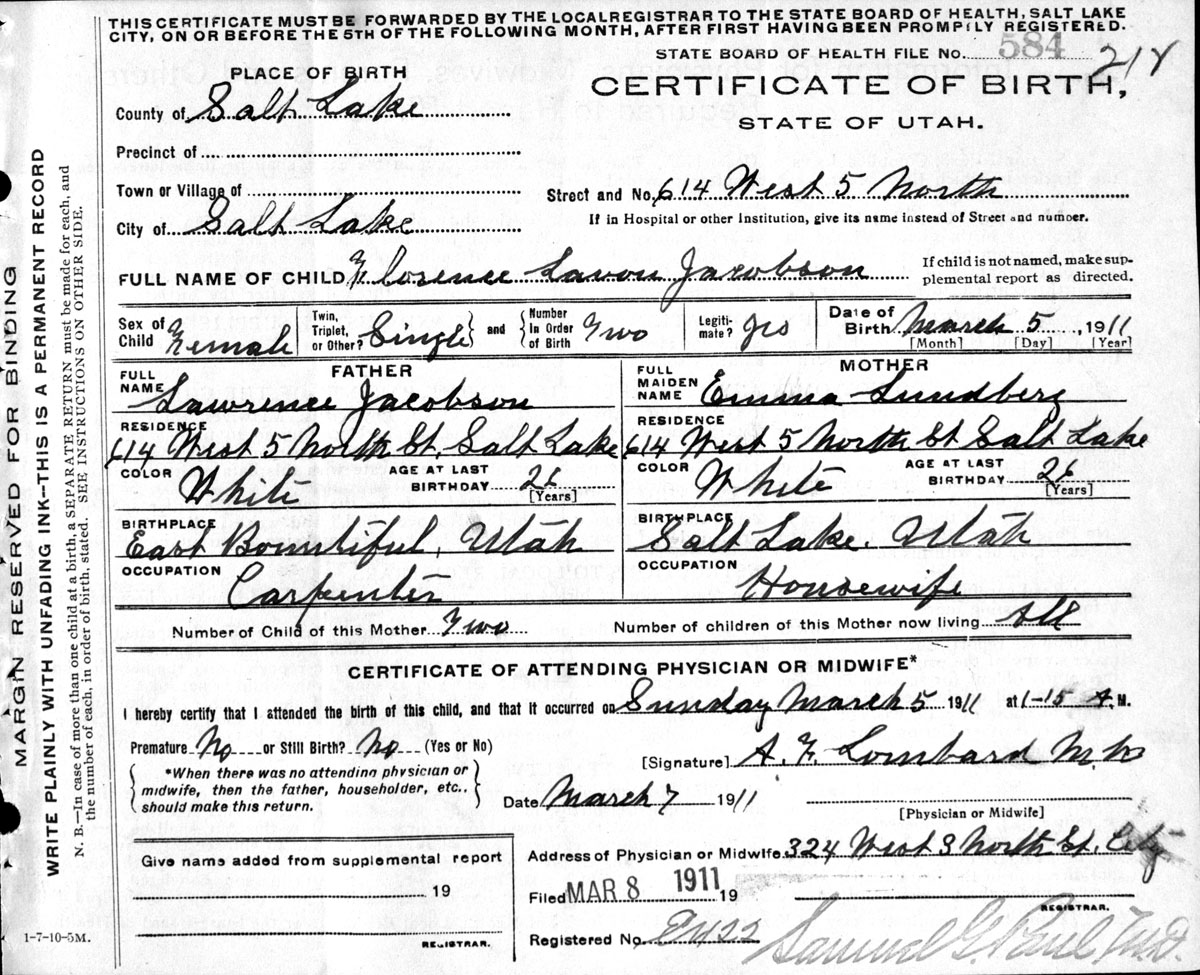 THIS CERTIFICATE MUST BE FORWARDED BY THE LOCAL REGISTRAR TO THE STATE BOARD OF HEALTH, SALT LAKE
CITY, ON OR BEFORE THE 5TH OF THE FOLLOWING MONTH, AFTER FIRST HAVING BEEN PROMPTLY REGISTERED.
STATE BOARD OF HEALTH FILE No. 584
218
PLACE OF BIRTH
CERTIFICATE OF BIRTH,
STATE OF UTAH.
County of Salt Lake
Precinct of
Town or Village of
Street and No. 614 West 5 North
City of Salt Lake
If in Hospital or other Institution, give its name instead of Street and number.
FULL NAME OF CHILD Florence Lavon Jacobson
If child is not named, make sup-
plemental report as directed.
Sex of Child Female
Twin, Triplet, or Other? Single
and
Number In Order of Birth Two
Legiti-mate? Yes
Date of Birth March 5, 1911
[Month] [Day] [Year]
FATHER
MOTHER
FULL NAME Lawrence Jacobson
FULL MAIDEN NAME Emma Lundberg
RESIDENCE 614 West 5 North St. Salt Lake
RESIDENCE 614 West 5 North St Salt Lake
COLOR White AGE AT LAST BIRTHDAY 26 [Years]
COLOR White AGE AT LAST BIRTHDAY 26 [Years]
BIRTHPLACE East Bountiful, Utah
BIRTHPLACE Salt Lake. Utah
OCCUPATION Carpenter
OCCUPATION Housewife
Number of Child of this Mother Two
Number of children of this Mother now living All
CERTIFICATE OF ATTENDING PHYSICIAN OR MIDWIFE*
I hereby certify that I attended the birth of this child, and that it occurred on Sunday March 5 1911 at 1-15 M.
Premature No or Still Birth? No (Yes or No)
[Signature] A. F. Lombard M.D
*When there was no attending physician or
midwife, then the father, householder, etc.,
should make this return.
Date March 7 1911
[Physician or Midwife]
Give name added from supplemental report
19
REGISTRAR.
Address of Physician or Midwife 324 West 3 North St. City
Filed MAR 8 1911 19
REGISTRAR.
Registered No.
Samuel G. Paul, M.D.
1-7-10-5M.
MARGIN RESERVED FOR BINDING
WRITE PLAINLY WITH UNFADING INK—THIS IS A PERMANENT RECORD
N. B.—In case of more than one child at a birth, a SEPARATE RETURN must be made for each, and
the number of each, in order of birth, stated. SEE INSTRUCTIONS ON OTHER SIDE.